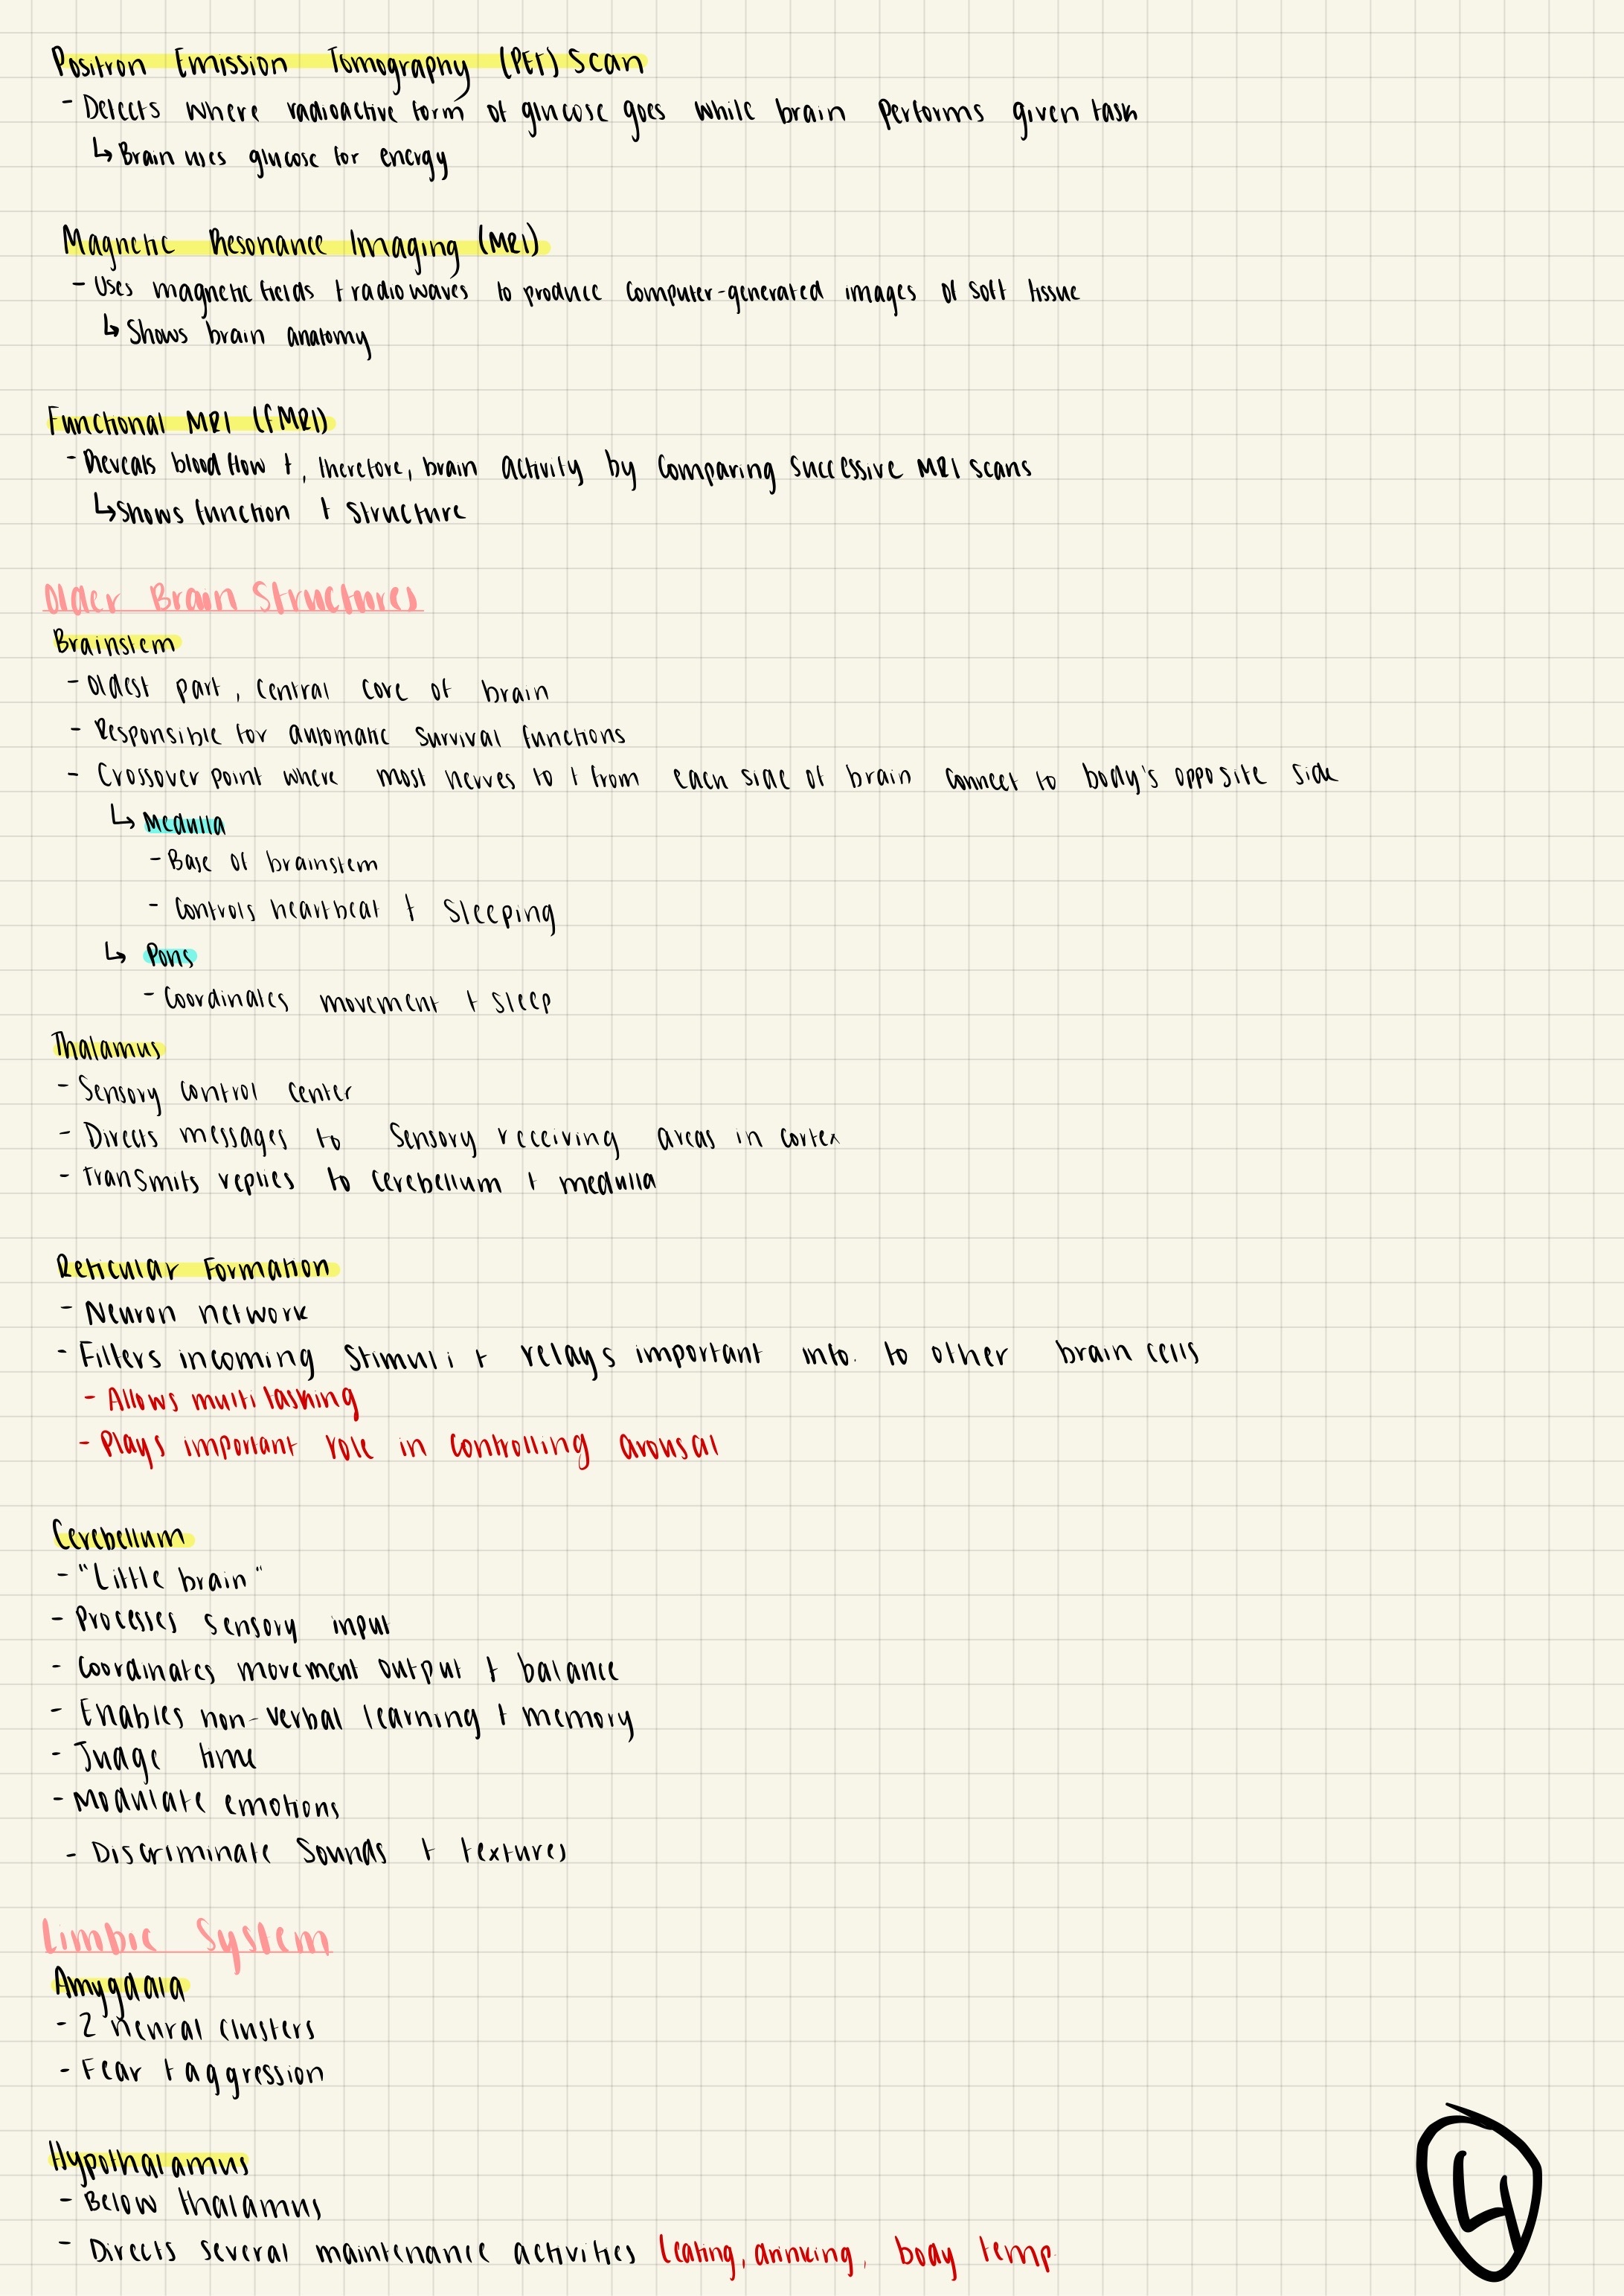 Positron Emission Tomography (PET) Scan
- Detects where radioactive form of glucose goes while brain performs given task
↳ Brain uses glucose for energy
Magnetic Resonance Imaging (MRI)
- Uses magnetic fields + radio waves to produce computer-generated images of soft tissue
↳ Shows brain anatomy
Functional MRI (fMRI)
- Reveals blood flow +, therefore, brain activity by comparing successive MRI scans
↳ Shows function + structure
Older Brain Structures
Brainstem
- Oldest part, central core of brain
- Responsible for automatic survival functions
- Crossover point where most nerves to + from each side of brain connect to body's opposite side
↳ Medulla
- Base of brainstem
- Controls heartbeat + sleeping
↳ Pons
- Coordinates movement + sleep
Thalamus
- Sensory control center
- Directs messages to sensory receiving areas in cortex
- Transmits replies to cerebellum + medulla
Reticular Formation
- Neuron network
- Filters incoming stimuli + relays important info. to other brain cells
- Allows multitasking
- Plays important role in controlling arousal
Cerebellum
- "Little brain"
- Processes sensory input
- Coordinates movement output + balance
- Enables non-verbal learning + memory
- Judge time
- Modulate emotions
- Discriminate sounds + textures
Limbic System
Amygdala
- 2 neural clusters
- Fear + aggression
Hypothalamus
- Below thalamus
- Directs several maintenance activities (eating, drinking, body temp.
4